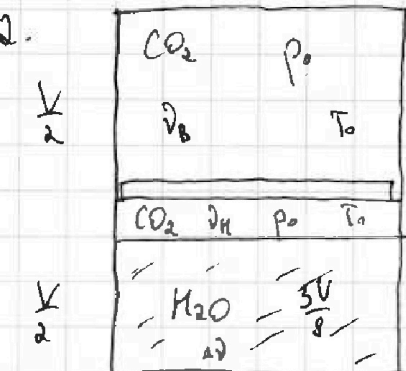 2.
CO₂ p₀
V/2 ν_B T₀
CO₂ ν_H p₀ T₀
V/2 H₂O 3V/8
Δν